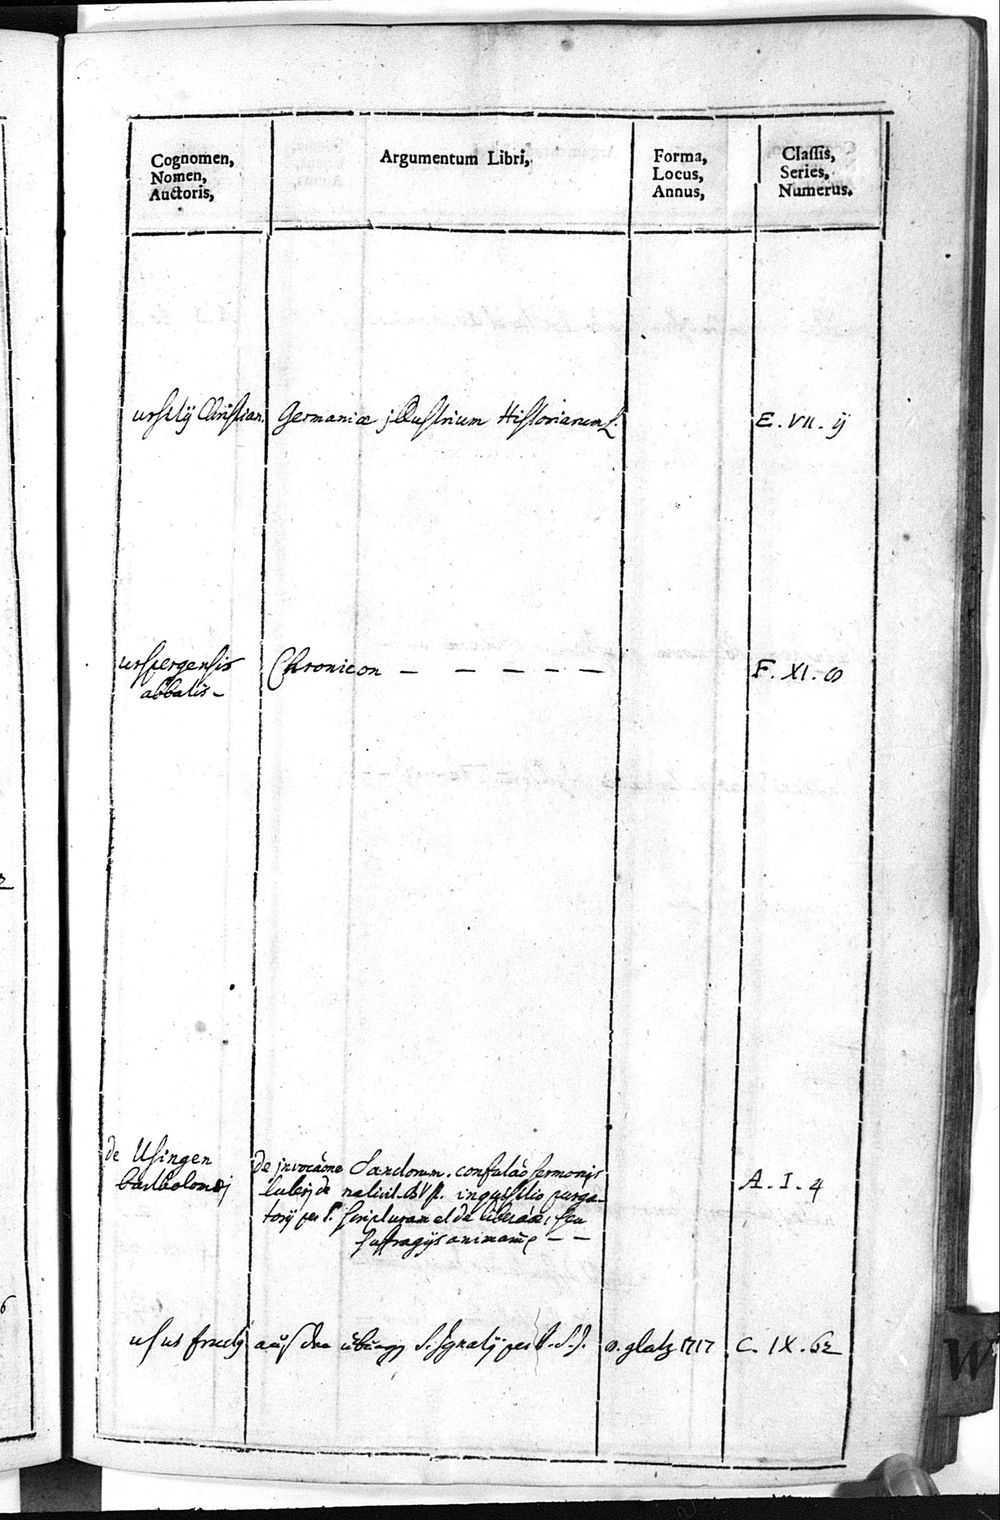 Cognomen,
Nomen,
Auctoris,
Argumentum Libri,
Forma,
Locus,
Annus,
Classis,
Series,
Numerus.
urstij Christian. Germaniæ jllustrium Historicarum E. VII. ij
urspergensis Chronicon — — — — — F. XI.
abbatis —
de Usingen
Bartholomæj
De jnvocãone Sanctorum. confutaõ sermonis
Lutherj de nativit. inquisitio purga-
torij per S. scripturam et de liberãoe, seu
suffragijs animarũ — —
A. I. 4
usus fructq aus den S. Ignatij per P. S. J. 8. glatz 1717 C. IX. 62
W